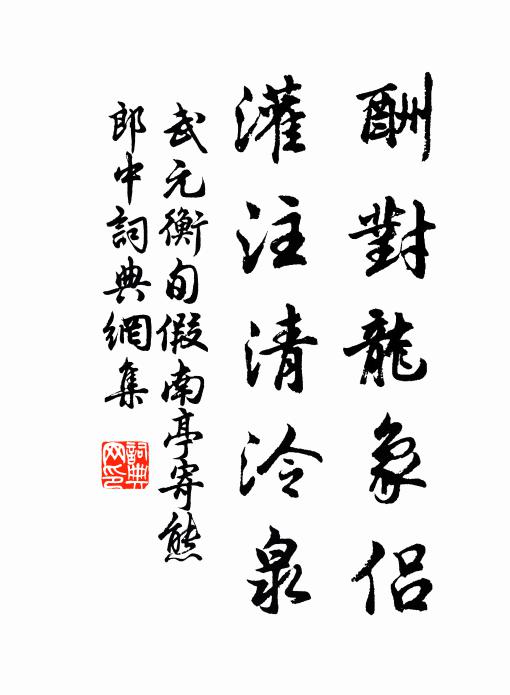 酬對龍象侶
灌注清泠泉
武元衡旬假南亭寄熊
郎中詞典網集
詞典網印